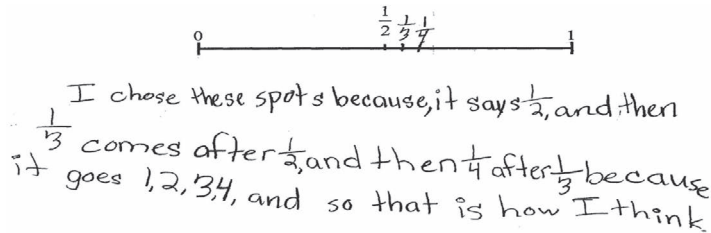 0 1/2 1/3 1/4 1
I chose these spots because, it says 1/2, and then
1/3 comes after 1/2, and then 1/4 after 1/3 because
it goes 1, 2, 3, 4, and so that is how I think.